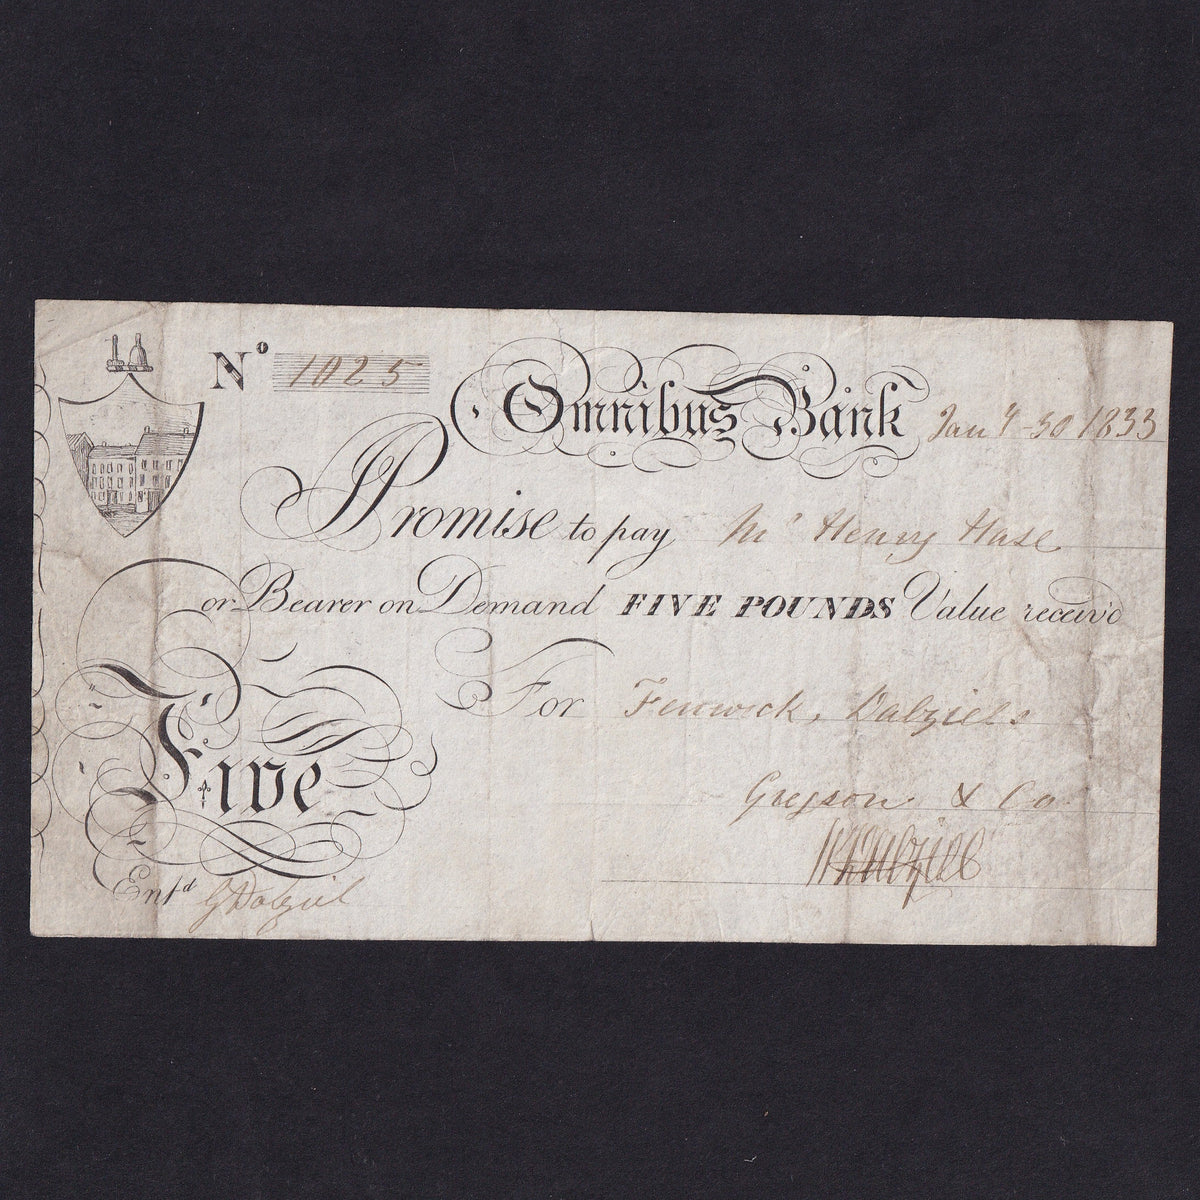 Nº 1025
Omnibus Bank Jany 30 1833
Promise to pay Mr Henry Hase
or Bearer on Demand FIVE POUNDS Value receiv'd
For Fenwick, Dalziels
Gregson & Co
Five
Entd G Dalziel